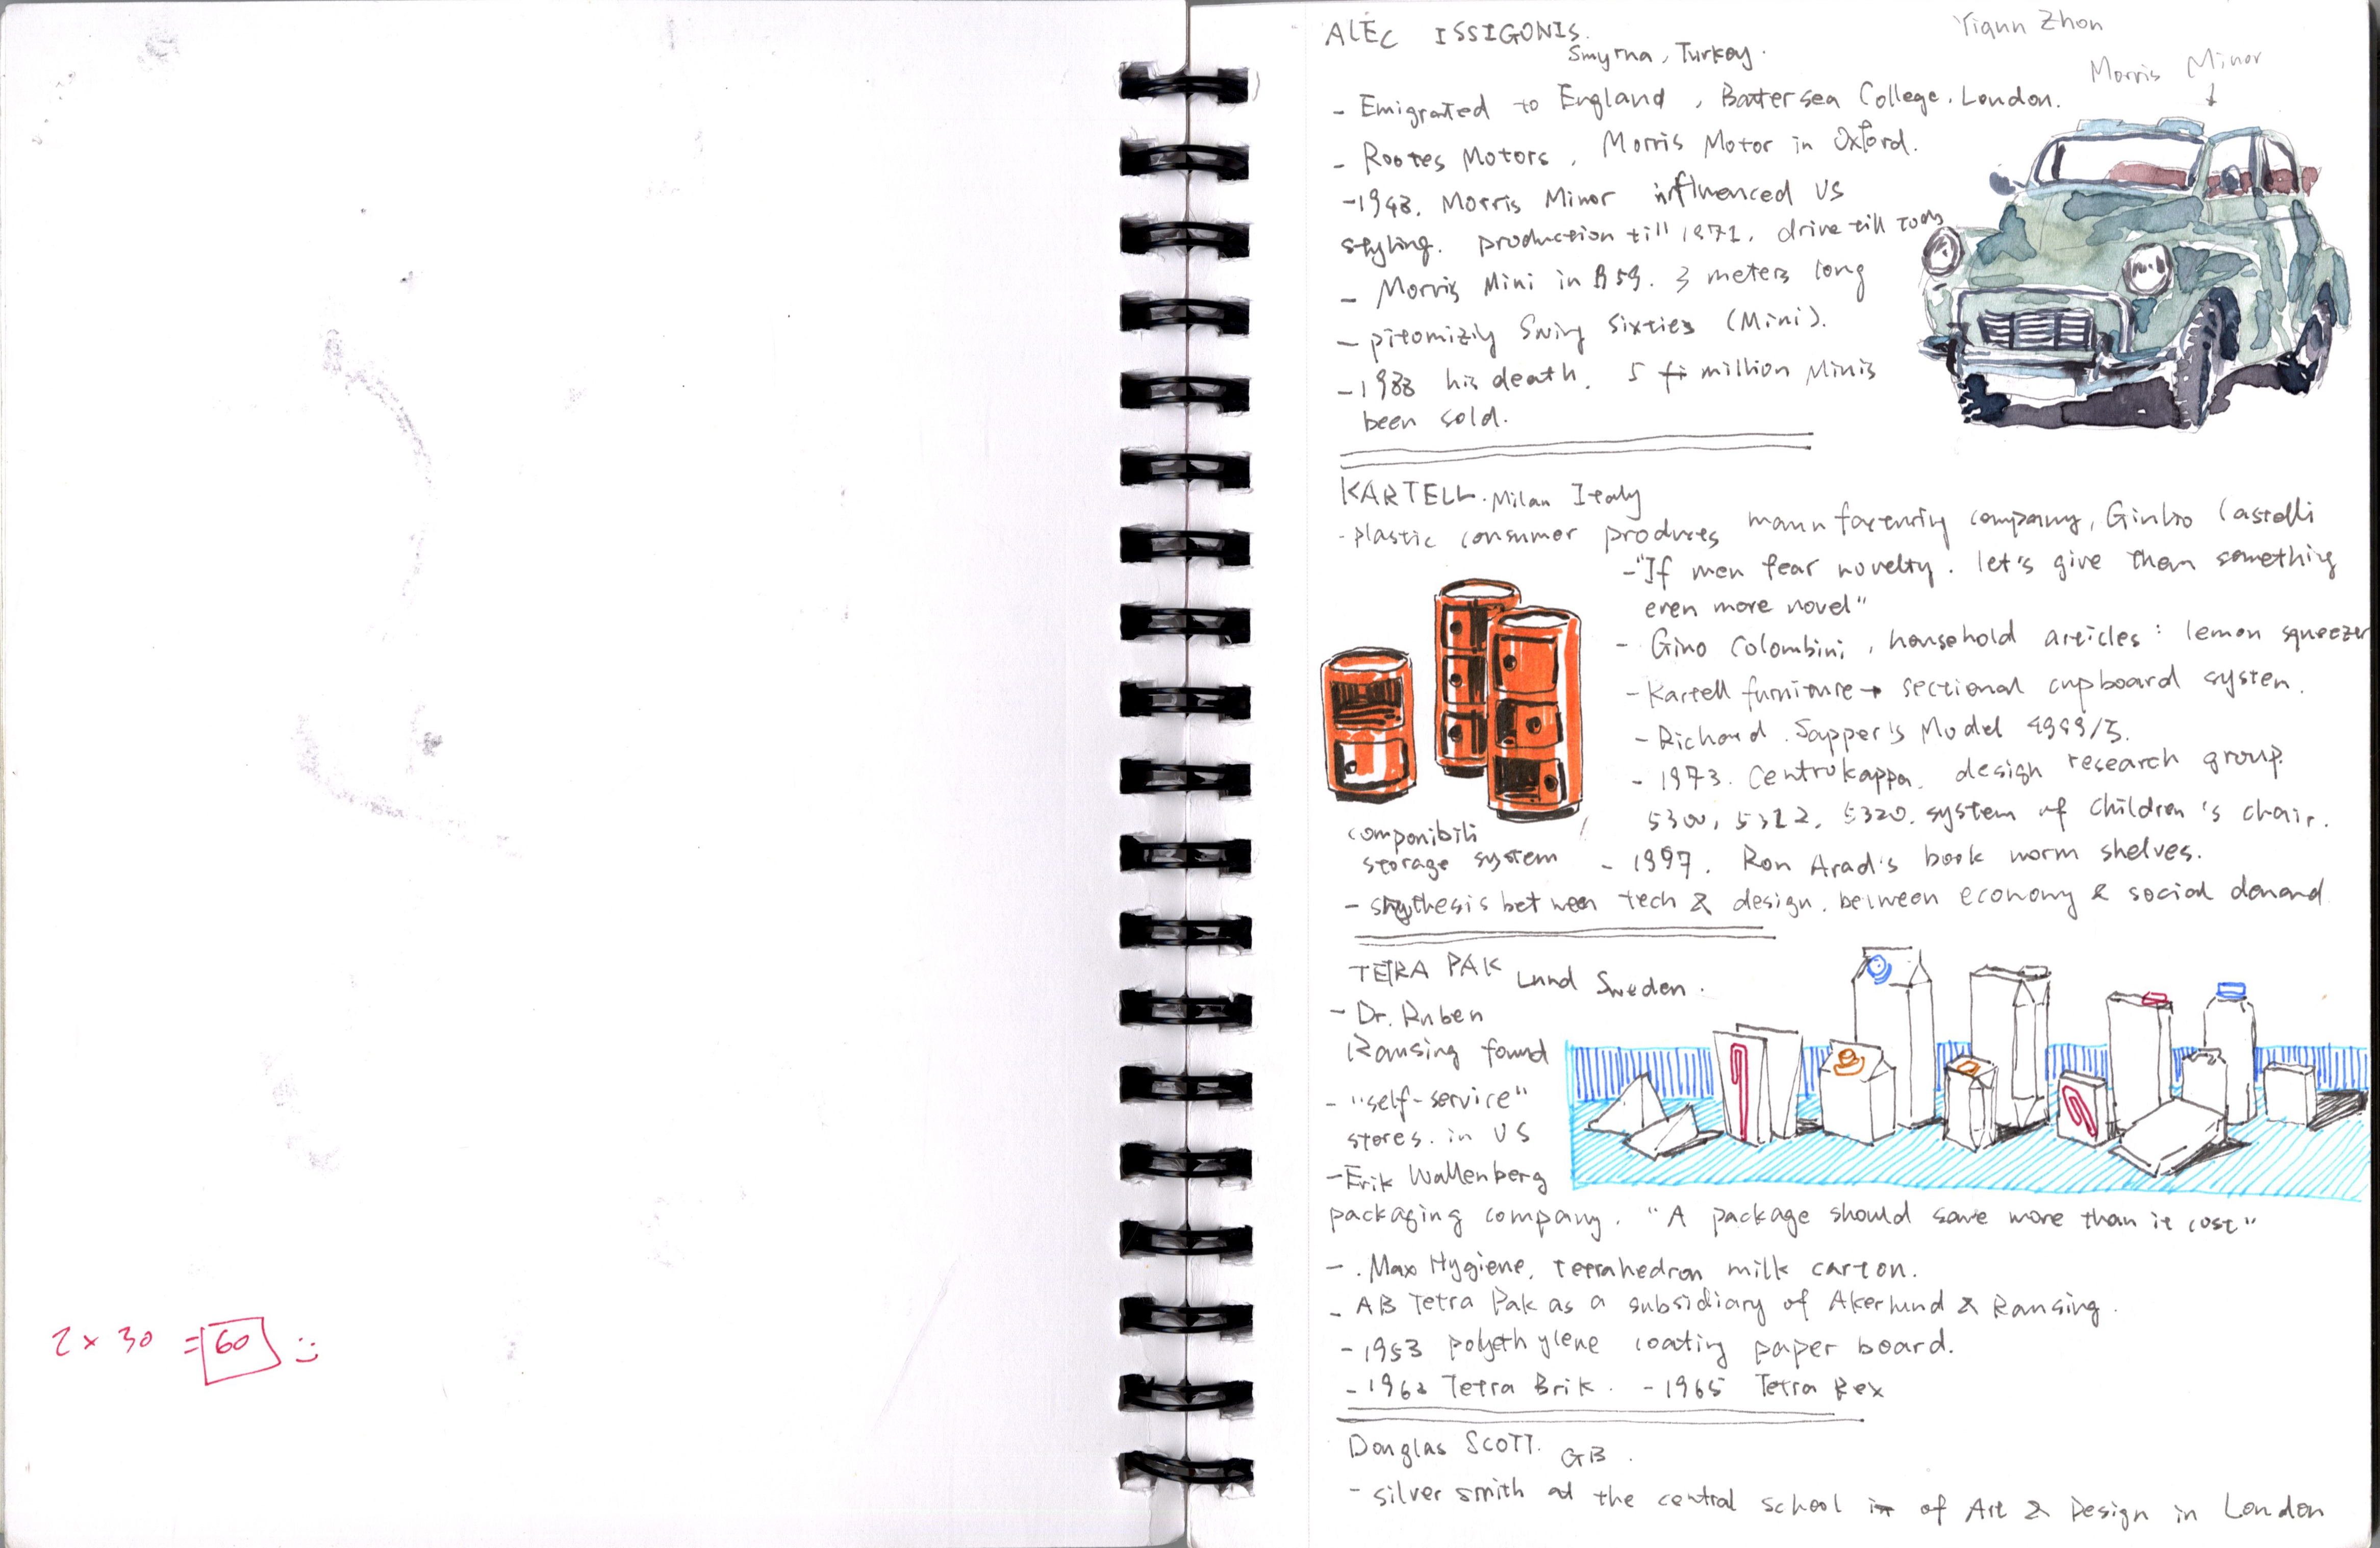 2 x 30 = 60 :)
ALEC ISSIGONIS.
Smyrna, Turkey.
Yiann Zhon
Morris Minor
- Emigrated to England, Battersea College. London.
- Rootes Motors, Morris Motor in Oxford.
- 1948. Morris Minor influenced US
styling. production till 1971. drive till today
- Morris Mini in 1959. 3 meters long
- pitomizily Swing Sixties (Mini).
- 1988 his death. 5 million Minis
been sold.
KARTELL. Milan Italy
- plastic consumer products manufacturing company, Ginlio Castelli
- "If men fear novelty. let's give them something
even more novel"
- Gino Colombini, household articles: lemon squeezer
- Kartell furniture → sectional cupboard system.
- Richard. Sapper's Model 4999/5.
- 1973. Centrokappa. design research group.
5300, 5312, 5320. system of children's chair.
componibili
storage system
- 1997. Ron Arad's book worm shelves.
- synthesis between tech & design. between economy & social demand
TETRA PAK Lund Sweden.
- Dr. Ruben
Rausing found
- "self-service"
stores. in US
- Erik Wallenberg
packaging company. "A package should save more than it cost"
- . Max Hygiene, tetrahedron milk carton.
- AB Tetra Pak as a subsidiary of Akerlund & Rausing.
- 1953 polyethylene coating paper board.
- 1963 Tetra Brik. - 1965 Tetra Rex
Douglas SCOTT. GB.
- silver smith at the central school of Art & Design in London